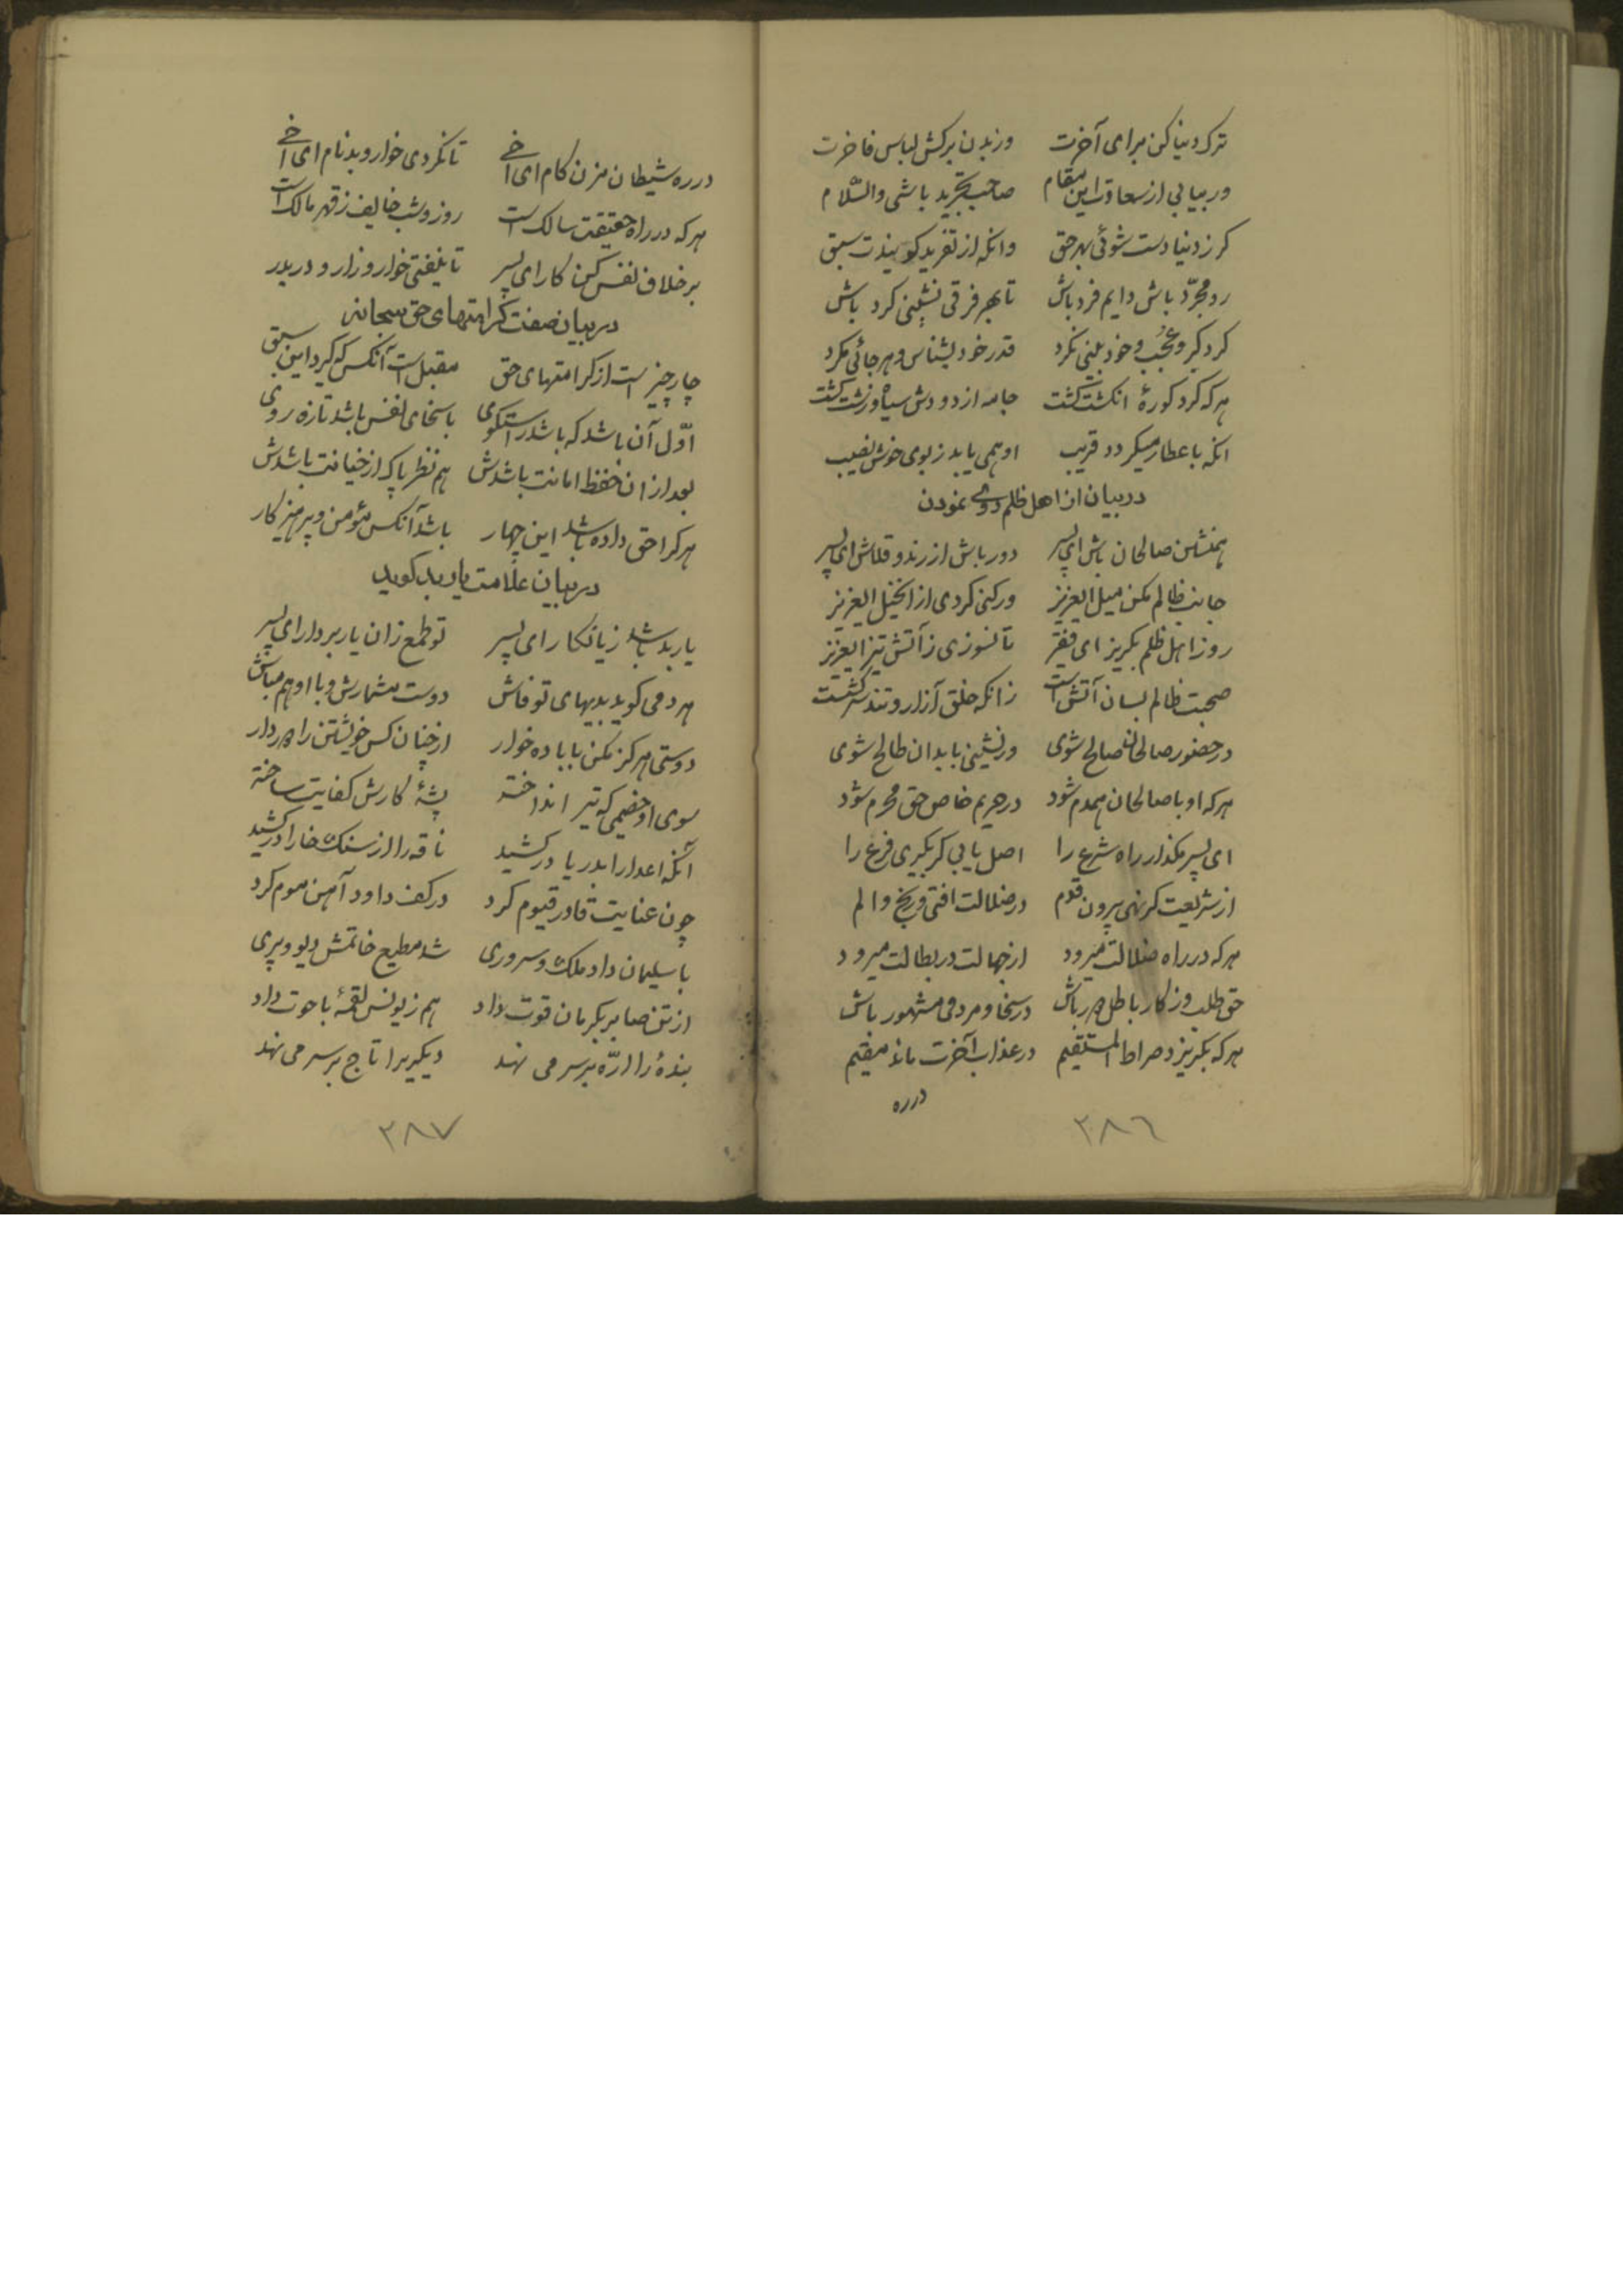 ترک دنیا کن برای آخرت وز بدن برکش لباس فاخرت
ور بیابی از سعادت این مقام صاحب تجرید باشی والسّلام
کر ز دنیا دست شوئی بهر حق وانکه از تفرید کویندت سبق
رو مجرّد باش دایم فرد باش تا بهر فرقی نشینی کرد باش
کرد کبر و عُجُب و خود بینی مکرد قدر خود بشناس و هر جائی مکرد
هر که کرد کورهٔ انکشت کشت جامه از دودش سیاه و زشت کشت
انکه با عطار میکردد قریب او همی یابد ز بوی خوش نصیب
در بیان از اهل ظلم دوری نمودن
همنشین صالحان باش ای پسر دور باش از رند و قلاش ای پسر
جانب ظالم مکن میل ایعزیز ور کنی کردی از انخیل ایعزیز
رو ز اهل ظلم بکریز ای فقیر تا نسوزی ز آتش تیز ایعزیز
صحبت ظالم بسان آتش است زانکه خلق آزار و تند و سرکشست
در حضور صالحان صالح شوی ور نشینی با بدان طالح شوی
هر که او با صالحان همدم شود در حریم خاص حق محرم شود
ای پسر مکذار راه شرع را اصل یابی کر بکیری فرع را
از شریعت کر نهی بیرون قدم در ضلالت افتی و رنج و الم
هر که در راه ضلالت میرود از جهالت در بطالت میرود
حق طلب وز کار باطل دور باش در سخا و مردمی مشهور باش
هر که بکریزد صراط المستقیم در عذاب آخرت ماند مقیم
در ره
٣٨٦
در ره شیطان مزن کام ای اخی تا نکردی خوار و بدنام ای اخی
هر که در راه حقیقت سالک است روز و شب خایف ز قهر مالک است
بر خلاف نفس کن کار ای پسر تا نیفتی خوار و زار و در بدر
در بیان صفت کرامتهای حق سبحانه
چار چیز است از کرامتهای حق مقبل است آنکس که کیرد این سبق
اوّل آن باشد که باشد راستکوی با سخای نفس باشد تازه روی
بعد از ان حفظ امانت باشدش هم نظر پاک از خیانت باشدش
هر کرا حق داده باشد این چهار باشد آنکس مؤمن و پرهیز کار
در بیان علامت یار بد کوید
یار بد باشد زیانکار ای پسر تو طمع زان یار بردار ای پسر
هر دمی کوید بدیهای تو فاش دوست مشمارش و با او هم مباش
دوستی هرکز مکن با باده خوار از چنان کس خویشتن را دور دار
سوی او خصمی که تیر انداخته پشهٔ کارش کفایت ساخته
آنکه اعدا را بدریا در کشید ناقه را از سنک خارا در کشید
چون عنایت قادر قیوم کرد در کف داود آهن موم کرد
با سلیمان داد ملک و سروری شد مطیع خاتمش دیو و پری
از تن صابر بکرمان قوت داد هم ز یونس لقمهٔ با حوت داد
بندهٔ را ارّه بر سر می نهد دیکیرا تاج بر سر می نهد
٣٨٧